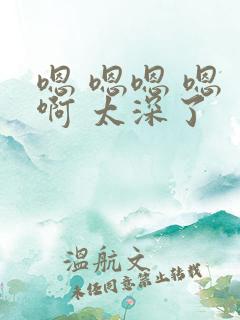 嗯 嗯嗯 嗯
啊 太深了
温航文
未经同意禁止转载